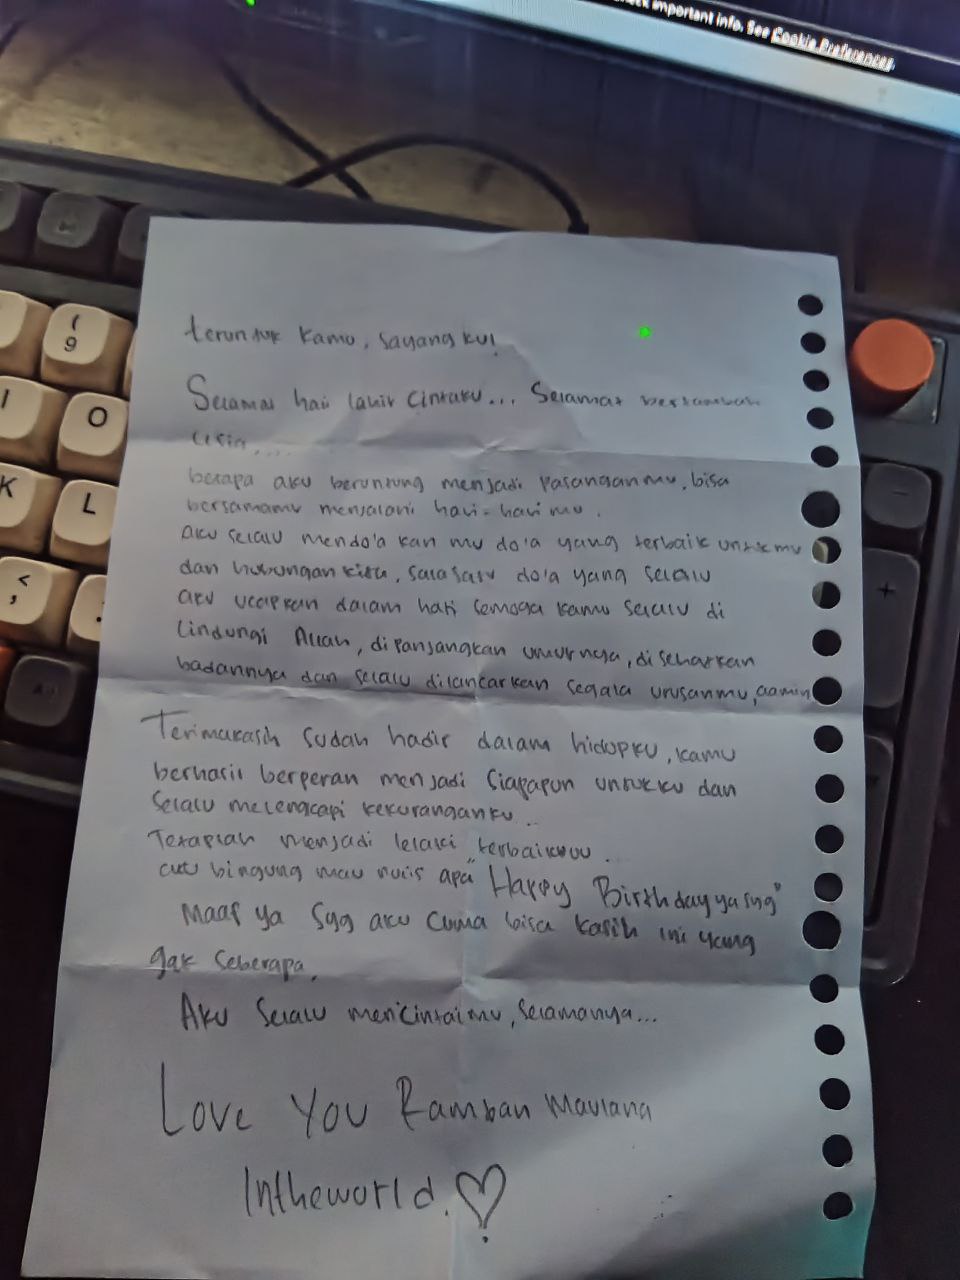 important info. See Cookie Preferences.
(
9
I
O
K
L
<
,
.
-
+
teruntuk kamu, sayangku!
Selamat hari lahir cintaku... Selamat bertambah
usia....
berapa aku beruntung menjadi pasanganmu, bisa
bersamamu menjalani hari-harimu.
Aku selalu mendo'a kan mu do'a yang terbaik untukmu
dan hubungan kita, salasatu do'a yang selalu
aku ucapkan dalam hati semoga kamu selalu di
lindungi Allah, di panjangkan umurnya, di sehatkan
badannya dan selalu dilancarkan segala urusanmu, aamiin
Terimakasih sudah hadir dalam hidupku, kamu
berhasil berperan menjadi siapapun untukku dan
selalu melengkapi kekuranganku..
Tetaplah menjadi lelaki terbaikkuu.
bingung mau nulis apa "Happy Birthday ya syg"
Maaf ya syg aku cuma bisa kasih ini yang
gak seberapa,
Aku selalu mencintaimu, selamanya...
Love You Ramban Maulana
Intheworld.